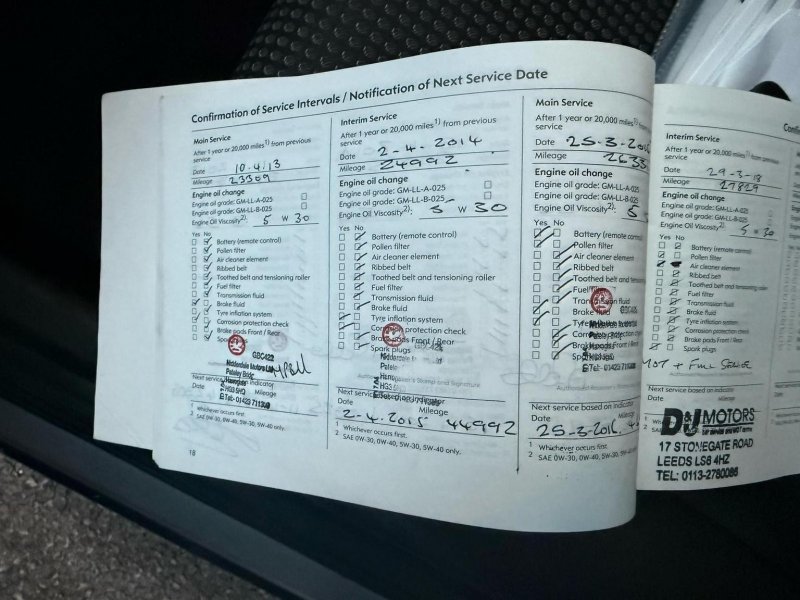 Confirmation of Service Intervals / Notification of Next Service Date
Main Service
After 1 year or 20,000 miles1) from previous
service
Date 10.4.13
Mileage 23309
Engine oil change
Engine oil grade: GM-LL-A-025
Engine oil grade: GM-LL-B-025
Engine Oil Viscosity2): 5 W 30
Yes No
Battery (remote control)
Pollen filter
Air cleaner element
Ribbed belt
Toothed belt and tensioning roller
Fuel filter
Transmission fluid
Brake fluid
Tyre inflation system
Corrosion protection check
Brake pads Front / Rear
GBC422
Nidderdale Motors
Pateley Bridge
Harrogate
HG3 5HQ
Tel: 01423 711
Next service indicator
Date Mileage
1 Whichever occurs first.
2 SAE 0W-30, 0W-40, 5W-30, 5W-40 only.
18
Interim Service
After 1 year or 20,000 miles1) from previous
service
Date 2-4-2014
Mileage 24992
Engine oil change
Engine oil grade: GM-LL-A-025
Engine oil grade: GM-LL-B-025
Engine Oil Viscosity2): 5 W 30
Yes No
Battery (remote control)
Pollen filter
Air cleaner element
Ribbed belt
Toothed belt and tensioning roller
Fuel filter
Transmission fluid
Brake fluid
Tyre inflation system
Corrosion protection check
Brake pads Front / Rear
Spark plugs
Nidderdale
Pateley
HG3
Stamp and Signature
Next service based on indicator
Date Mileage
2-4-2015 44992
1 Whichever occurs first.
2 SAE 0W-30, 0W-40, 5W-30, 5W-40 only.
Main Service
After 1 year or 20,000 miles1) from previous
service
Date 25-3-201
Mileage 2633
Engine oil change
Engine oil grade: GM-LL-A-025
Engine oil grade: GM-LL-B-025
Engine Oil Viscosity2): 5
Yes No
Battery (remote control)
Pollen filter
Air cleaner element
Ribbed belt
Toothed belt and
Fuel filter
fluid
Brake fluid
Spark plugs
Next service based on indicator
Date Mileage
25-3-2016
1 Whichever occurs first.
2 SAE 0W-30, 0W-40, 5W-30, 5W-40 only.
Interim Service
After 1 year or 20,000 miles1) from previous
service
Date 29-3-18
Mileage 27829
Engine oil change
Engine oil grade: GM-LL-A-025
Engine oil grade: GM-LL-B-025
Engine Oil Viscosity2): 5 W 30
Yes No
Battery (remote control)
Pollen filter
Air cleaner element
Ribbed belt
Toothed belt and tensioning roller
Fuel filter
Transmission fluid
Brake fluid
Tyre inflation system
Corrosion protection check
Brake pads Front / Rear
Spark plugs
MOT + Full Service
D&J MOTORS
17 STONEGATE ROAD
LEEDS LS6 4HZ
TEL: 0113-2780086